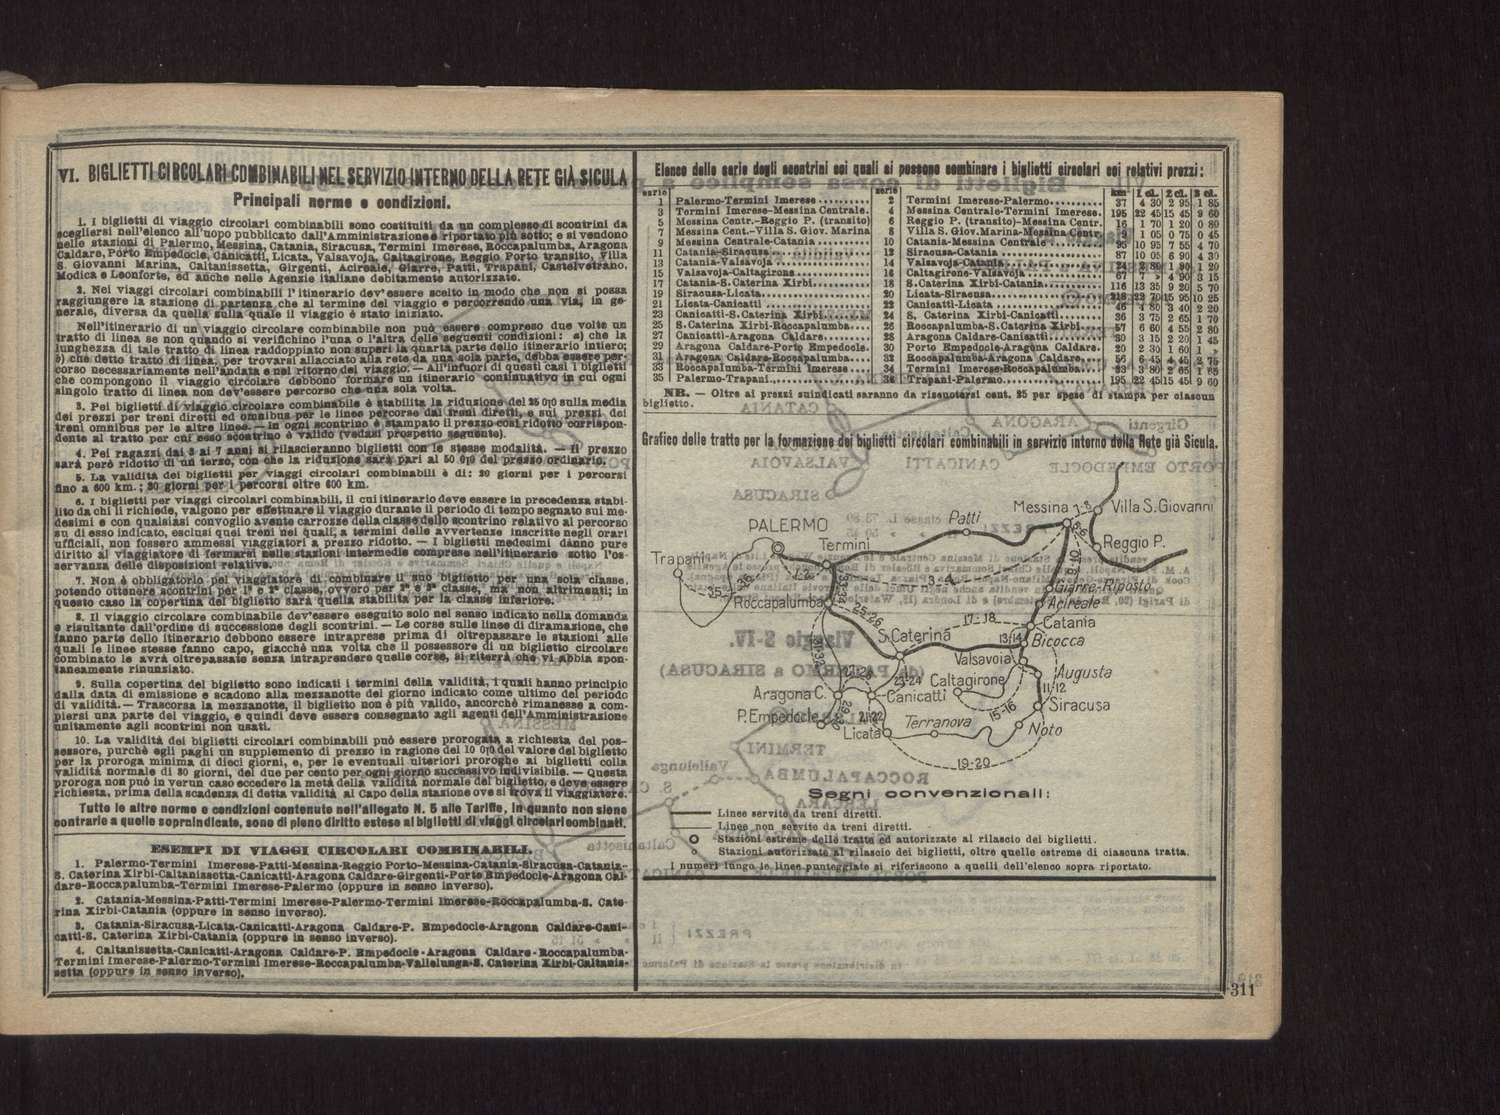 VI. BIGLIETTI CIRCOLARI COMBINABILI NEL SERVIZIO INTERNO DELLA RETE GIÀ SICULA
Principali norme e condizioni.
1. I biglietti di viaggio circolari combinabili sono costituiti da un complesso di scontrini da
scegliersi nell'elenco all'uopo pubblicato dall'Amministrazione e riportato più sotto; e si vendono
nelle stazioni di Palermo, Messina, Catania, Siracusa, Termini Imerese, Roccapalumba, Aragona
Caldare, Porto Empedocle, Canicattì, Licata, Valsavoja, Caltagirone, Reggio Porto transito, Villa
S. Giovanni Marina, Caltanissetta, Girgenti, Acireale, Giarre, Patti, Trapani, Castelvetrano,
Modica e Leonforte, ed anche nelle Agenzie italiane debitamente autorizzate.
2. Nei viaggi circolari combinabili l'itinerario dev'essere scelto in modo che si possa
raggiungere la stazione di partenza, che al termine del viaggio e percorrendo una via, in ge-
nerale, diversa da quella sulla quale il viaggio è stato iniziato.
Nell'itinerario di un viaggio circolare combinabile non può essere compreso due volte un
tratto di linea se non quando si verifichino l'una o l'altra delle seguenti condizioni: a) che la
lunghezza di tale tratto di linea raddoppiato non superi la quarta parte dello itinerario intiero;
b) che detto tratto di linea, per trovarsi allacciato alla rete da una sola parte, debba essere per-
corso necessariamente nell'andata e nel ritorno del viaggio. — All'infuori di questi casi i biglietti
che compongono il viaggio circolare debbono formare un itinerario continuativo in cui ogni
singolo tratto di linea non dev'essere percorso che una sola volta.
3. Pei biglietti di viaggio circolare combinabile è stabilita la riduzione del 25 0|0 sulla media
dei prezzi per treni diretti ed omnibus per le linee percorse dai treni diretti, e sui prezzi dei
treni omnibus per le altre linee. — In ogni scontrino è stampato il prezzo così ridotto corrispon-
dente al tratto per cui esso scontrino è valido (vedasi prospetto seguente).
4. Pei ragazzi dai 3 ai 7 anni si rilascieranno biglietti con le stesse modalità. — Il prezzo
sarà però ridotto di un terzo, con che la riduzione sarà pari al 50 0|0 del prezzo ordinario.
5. La validità dei biglietti per viaggi circolari combinabili è di: 20 giorni per i percorsi
fino a 600 km.; 30 giorni per i percorsi oltre 600 km.
6. I biglietti per viaggi circolari combinabili, il cui itinerario deve essere in precedenza stabi-
lito da chi li richiede, valgono per effettuare il viaggio durante il periodo di tempo segnato sui me-
desimi e con qualsiasi convoglio avente carrozze della classe dello scontrino relativo al percorso
su di esso indicato, esclusi quei treni nei quali, a termini delle avvertenze inscritte negli orari
ufficiali, non fossero ammessi viaggiatori a prezzo ridotto. — I biglietti medesimi danno pure
diritto al viaggiatore di fermarsi nelle stazioni intermedie comprese nell'itinerario sotto l'os-
servanza delle disposizioni relative.
7. Non è obbligatorio pel viaggiatore di combinare il suo biglietto per una sola classe,
potendo ottenere scontrini per 1ª e 2ª classe, ovvero per 2ª e 3ª classe, ma non altrimenti; in
questo caso la copertina del biglietto sarà quella stabilita per la classe inferiore.
8. Il viaggio circolare combinabile dev'essere eseguito solo nel senso indicato nella domanda
e risultante dall'ordine di successione degli scontrini. — Le corse sulle linee di diramazione, che
fanno parte dello itinerario debbono essere intraprese prima di oltrepassare le stazioni alle
quali le linee stesse fanno capo, giacchè una volta che il possessore di un biglietto circolare
combinato le avrà oltrepassate senza intraprendere quelle corse, si riterrà che vi abbia spon-
taneamente rinunziato.
9. Sulla copertina del biglietto sono indicati i termini della validità, i quali hanno principio
dalla data di emissione e scadono alla mezzanotte del giorno indicato come ultimo del periodo
di validità. — Trascorsa la mezzanotte, il biglietto non è più valido, ancorchè rimanesse a com-
piersi una parte del viaggio, e quindi deve essere consegnato agli agenti dell'Amministrazione
unitamente agli scontrini non usati.
10. La validità dei biglietti circolari combinabili può essere prorogata a richiesta del pos-
sessore, purchè egli paghi un supplemento di prezzo in ragione del 10 0|0 del valore del biglietto
per la proroga minima di dieci giorni, e, per le eventuali ulteriori proroghe ai biglietti colla
validità normale di 30 giorni, del due per cento per ogni giorno successivo indivisibile. — Questa
proroga non può in verun caso eccedere la metà della validità normale del biglietto, e deve essere
richiesta, prima della scadenza di detta validità al Capo della stazione ove si trova il viaggiatore.
Tutte le altre norme e condizioni contenute nell'allegato N. 5 alle Tariffe, in quanto non siene
contrarie a quelle sopraindicate, sono di pieno diritto estese ai biglietti di viaggi circolari combinati.
ESEMPI DI VIAGGI CIRCOLARI COMBINABILI.
1. Palermo-Termini Imerese-Patti-Messina-Reggio Porto-Messina-Catania-Siracusa-Catania-
S. Caterina Xirbi-Caltanissetta-Canicattì-Aragona Caldare-Girgenti-Porto Empedocle-Aragona Cal-
dare-Roccapalumba-Termini Imerese-Palermo (oppure in senso inverso).
2. Catania-Messina-Patti-Termini Imerese-Palermo-Termini Imerese-Roccapalumba-S. Cate-
rina Xirbi-Catania (oppure in senso inverso).
3. Catania-Siracusa-Licata-Canicattì-Aragona Caldare-P. Empedocle-Aragona Caldare-Cani-
cattì-S. Caterina Xirbi-Catania (oppure in senso inverso).
4. Caltanissetta-Canicattì-Aragona Caldare-P. Empedocle-Aragona Caldare-Roccapalumba-
Termini Imerese-Palermo-Termini Imerese-Roccapalumba-Vallelunga-S. Caterina Xirbi-Caltanis-
setta (oppure in senso inverso).
Elenco delle serie degli scontrini coi quali si possono combinare i biglietti circolari coi relativi prezzi:
serie serie km 1 cl. 2 cl. 3 cl.
1 Palermo-Termini Imerese 2 Termini Imerese-Palermo 37 4 30 2 95 1 85
3 Termini Imerese-Messina Centrale. 4 Messina Centrale-Termini Imerese. 195 22 45 15 45 9 60
5 Messina Centr.-Reggio P. (transito) 6 Reggio P. (transito)-Messina Centr. 16 1 70 1 20 0 80
7 Messina Cent.-Villa S. Giov. Marina 8 Villa S. Giov. Marina-Messina Centr. 1 05 0 75 0 45
9 Messina Centrale-Catania 10 Catania-Messina Centrale 95 10 95 7 55 4 70
11 Catania-Siracusa 12 Siracusa-Catania 87 10 05 6 90 4 30
13 Catania-Valsavoja 14 Valsavoja-Catania 1 20
15 Valsavoja-Caltagirone 16 Caltagirone-Valsavoja 67 7 » 4 90 3 15
17 Catania-S. Caterina Xirbi 18 S. Caterina Xirbi-Catania 116 13 35 9 20 5 70
19 Siracusa-Licata 20 Licata-Siracusa 15 95 10 25
21 Licata-Canicattì 22 Canicattì-Licata 46 4 85 3 40 2 20
23 Canicattì-S. Caterina Xirbi 24 S. Caterina Xirbi-Canicattì 36 3 75 2 65 1 70
25 S. Caterina Xirbi-Roccapalumba 26 Roccapalumba-S. Caterina Xirbi 57 6 60 4 55 2 80
27 Canicattì-Aragona Caldare 28 Aragona Caldare-Canicattì 30 3 15 2 20 1 45
29 Aragona Caldare-Porto Empedocle. 30 Porto Empedocle-Aragona Caldare. 20 2 30 1 60 1 »
31 Aragona Caldare-Roccapalumba 32 Roccapalumba-Aragona Caldare 56 6 45 4 45 2 75
33 Roccapalumba-Termini Imerese 34 Termini Imerese-Roccapalumba 33 3 80 2 65 1 65
35 Palermo-Trapani 36 Trapani-Palermo 195 22 45 15 45 9 60
NB. — Oltre ai prezzi suindicati saranno da riscuotersi cent. 25 per spese di stampa per ciascun
biglietto.
Grafico delle tratte per la formazione dei biglietti circolari combinabili in servizio interno della Rete già Sicula.
Messina 7-8 Villa S. Giovanni
PALERMO Patti 5-6
Trapani Termini Reggio P.
1-2 9-10
35 36 33-34 3-4 Giarre-Riposto
Roccapalumba Acireale
25-26 17-18 Catania
S. Caterina 13-14 Bicocca
31-32 Valsavoia
27-28 23-24 Caltagirone Augusta
Aragona C. Canicattì 11-12
15-16 Siracusa
P. Empedocle 29-30 21-22 Terranova
Licata Noto
19-20
Segni convenzionali:
Linee servite da treni diretti.
Linee non servite da treni diretti.
Stazioni estreme delle tratte ed autorizzate al rilascio dei biglietti.
Stazioni autorizzate al rilascio dei biglietti, oltre quelle estreme di ciascuna tratta.
I numeri lungo le linee punteggiate si riferiscono a quelli dell'elenco sopra riportato.
311